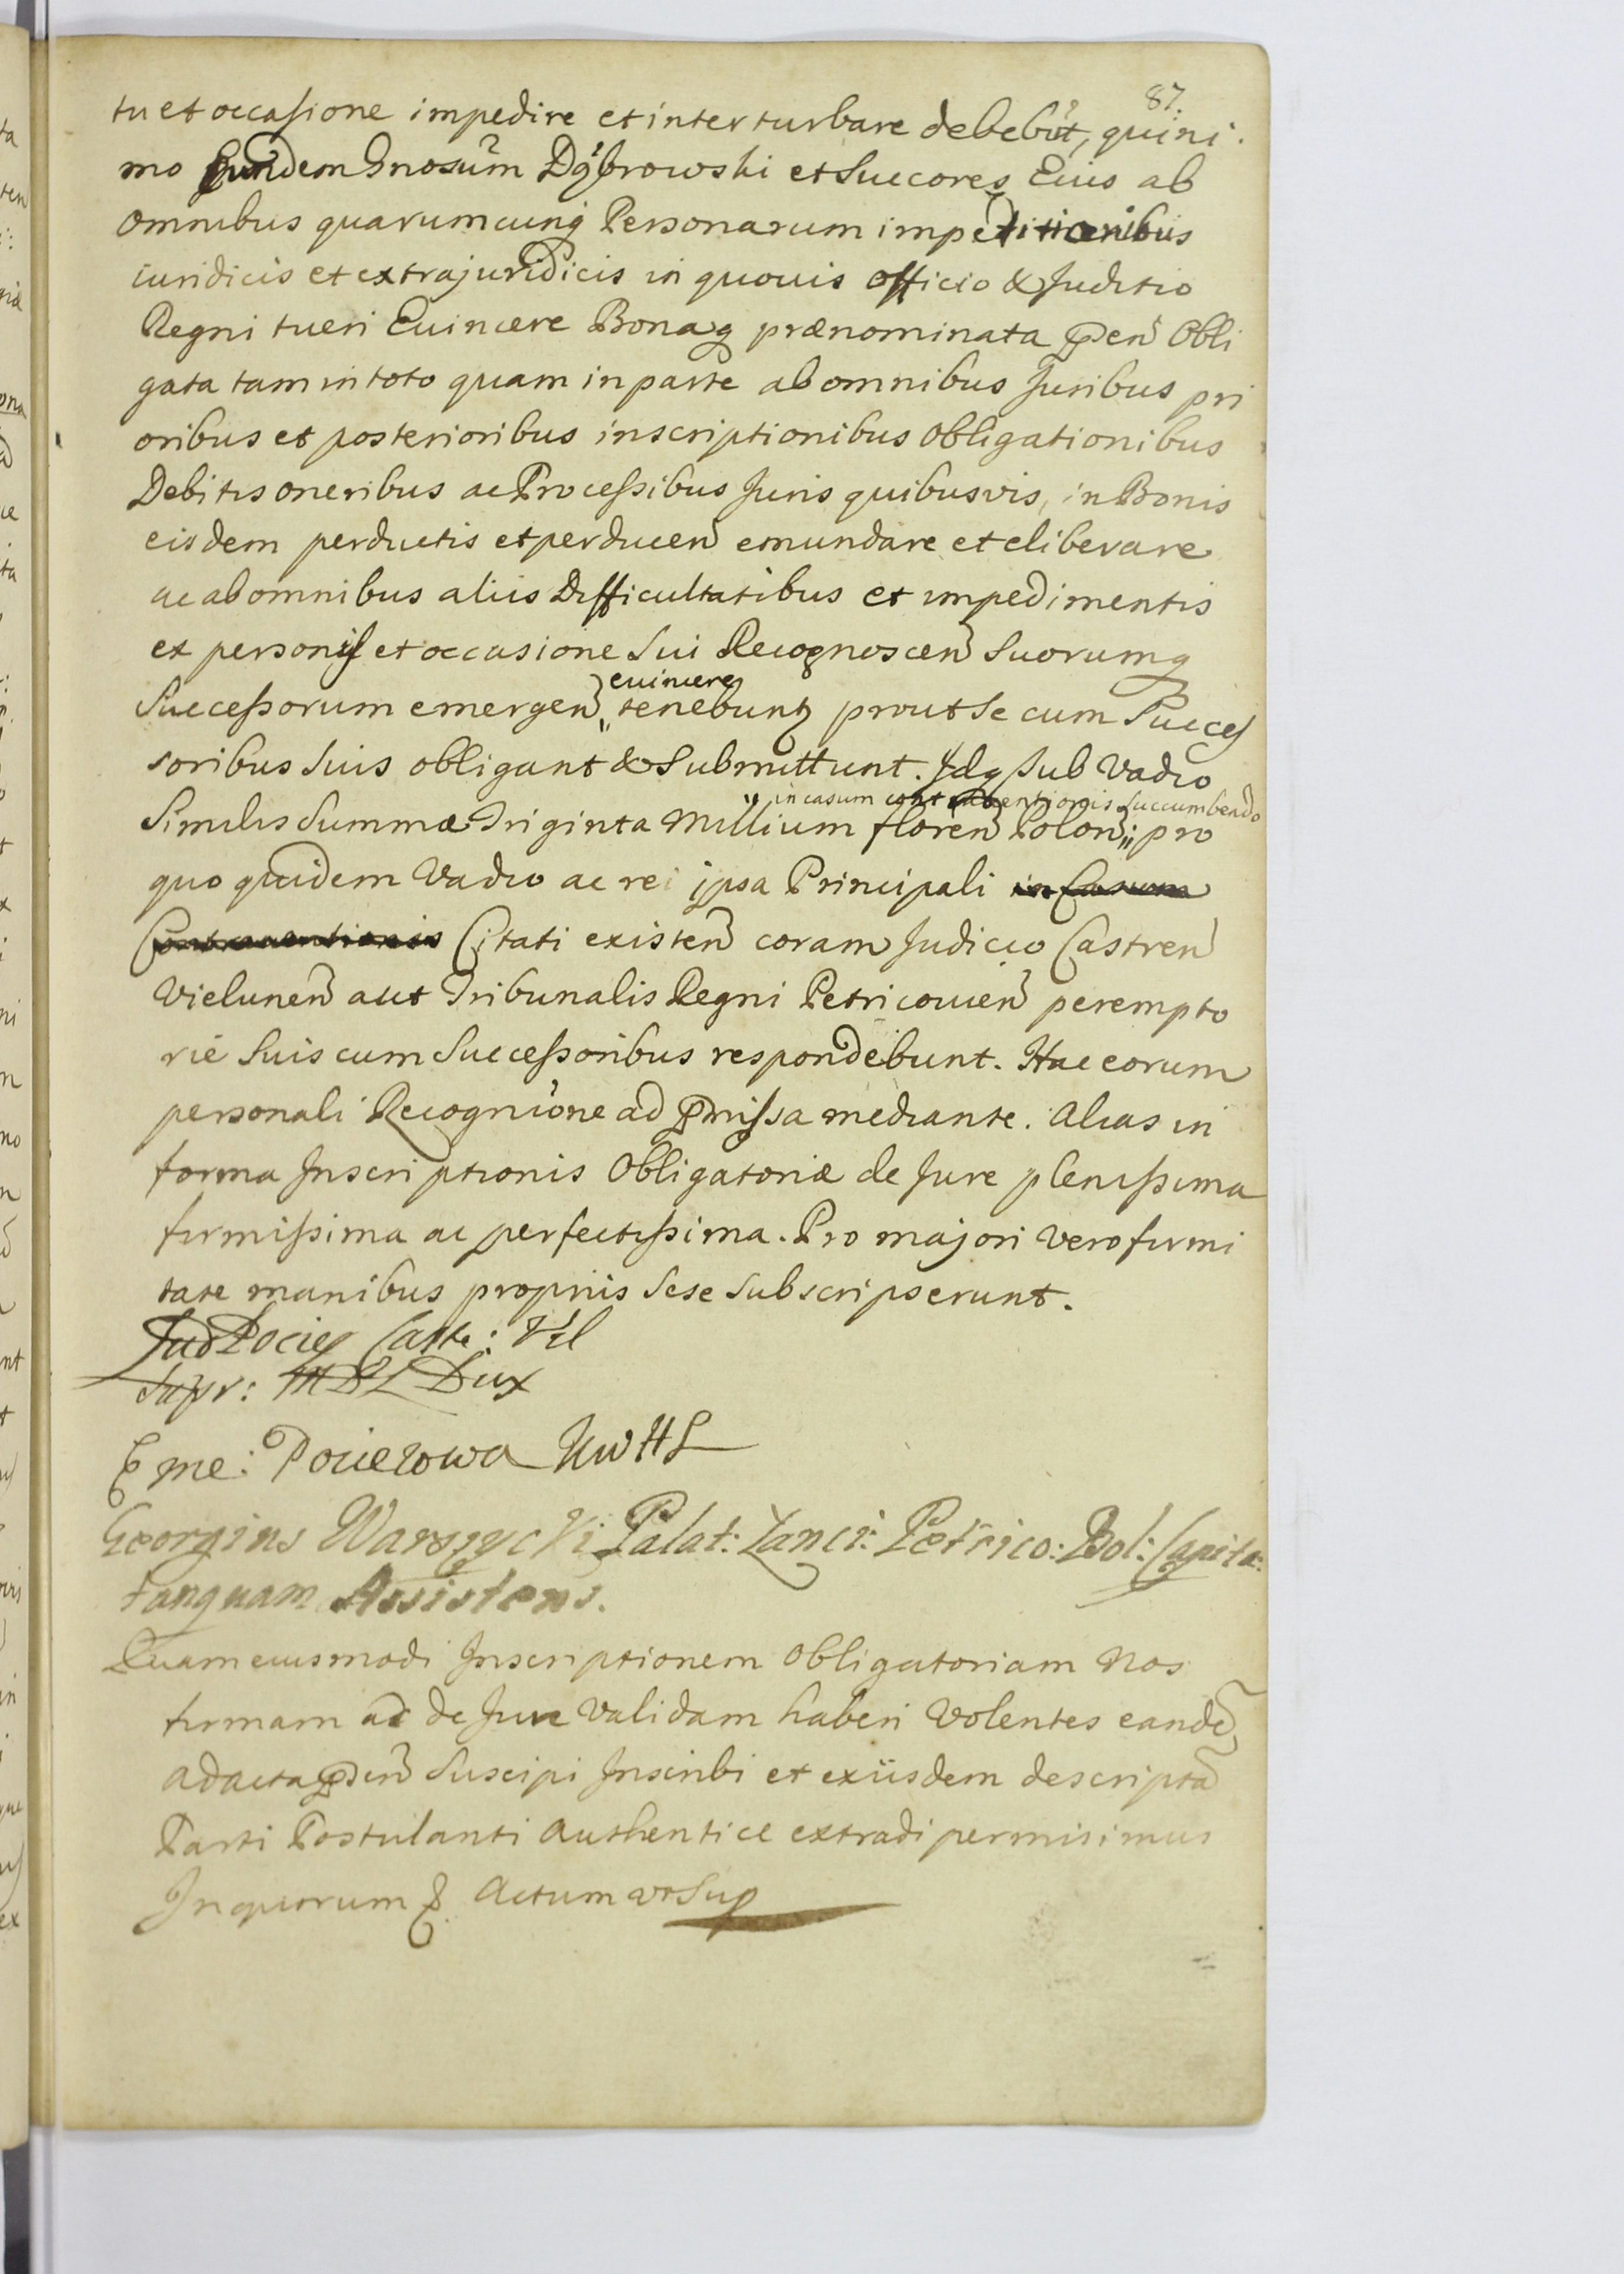 87.
tu et occasione impedire et interturbare debebūt, quini.
mo Eundem Gnosum̃ Dąbrowski et Succores Eius ab
omnibus quarumcunq Personarum impeditionibus
iuridicis et extrajuridicis in quouis officio & Juditio
Regni tueri Euincere Bonaq prænominata pñ Obli
gata tam in toto quam in parte ab omnibus Juribus pri
oribus et posterioribus inscriptionibus Obligationibus
Debitis oneribus ac Processibus Juris quibusvis, in Bonis
eisdem perductis et perducen̄ emundare et eliberare
ac ab omnibus aliis Difficultatibus et impedimentis
ex personis et occasione Sui Recognoscen̄ Suorumq
euincere
Successorum emergen̄ tenebuntʒ prout Se cum Succes
soribus Suis obligant & Submittunt. Idq Sub Vadio
in casum contraventionis succumbendo
Similis Summæ Triginta Millium floren̄ Polon̄: pro
quo quidem Vadio ac rei ipsa Principali in Casum
Contraventionis Citati existen̄ coram Judicio Castren̄
Vielunen̄ aut Tribunalis Regni Petricouien̄ perempto
rie Suis cum Successoribus respondebunt. Hac eorum
personali Recognĩone ad pmissa mediante. Alias in
forma Inscriptionis Obligatoriæ de Jure plenissima
firmissima ac perfectissima. Pro majori vero firmi
tate manibus propriis Sese Subscripserunt.
Lud Pociey Caste: Vil
Supr: M D L Dux
E me: Pocieiowa
Georgius Warszycki Palat: Lanci: Petrico: Bol: Capita:
tanquam Assistens.
Quam eiusmodi Inscriptionem Obligatoriam Nos
firmam ac de Jure Validam haberi Volentes eandē
ad acta pñ Suscipi Inscribi et exiisdem descriptā
Parti Postulanti Authentice extradi permisimus
In quorum &. Actum ut Sup